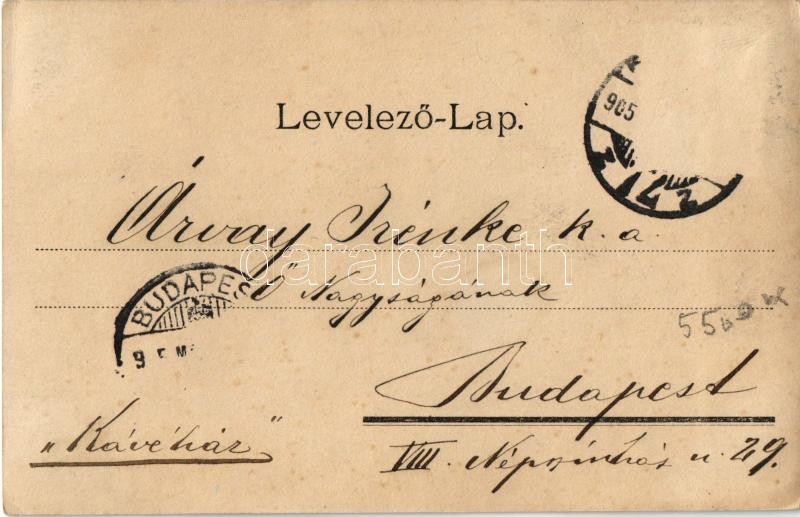 Levelező-Lap.
905
Árvay Irénke k. a.
Ő Nagyságának
BUDAPES
9 5 M
5500
Budapest
"Kávéház"
VIII. Népszínház u. 29.
darabanth